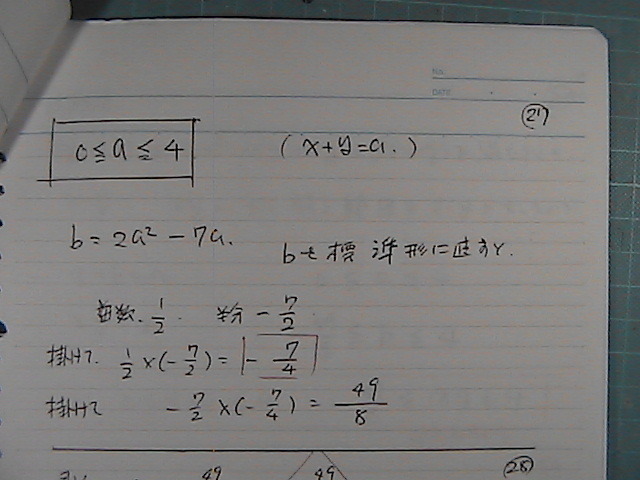 No.
DATE
㉑
0 ≦ a ≦ 4 (x+y=a.)
b = 2a² - 7a. bを標準形に直すと.
数. 1/2. - 7/2
掛けて. 1/2 ×(- 7/2) = - 7/4
掛けて - 7/2 ×(- 7/4) = 49/8
49 49 ㉘